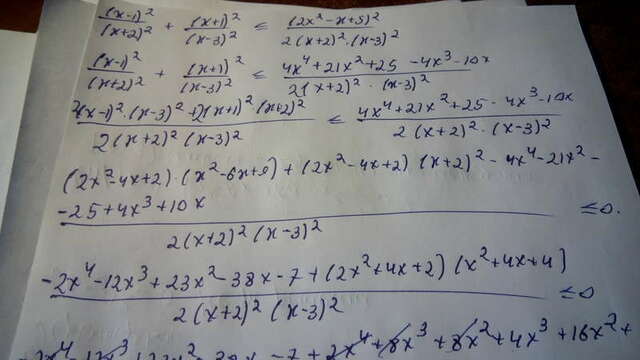 (x-1)²/(x+2)² + (x+1)²/(x-3)² ≤ (2x²-x+5)²/2(x+2)²·(x-3)²
(x-1)²/(x+2)² + (x+1)²/(x-3)² ≤ 4x⁴+21x²+25-4x³-10x/2(x+2)²·(x-3)²
2(x-1)²·(x-3)²+2(x+1)²(x+2)²/2(x+2)²(x-3)² ≤ 4x⁴+21x²+25-4x³-10x/2(x+2)²·(x-3)²
(2x²-4x+2)·(x²-6x+9)+(2x²-4x+2)(x+2)²-4x⁴-21x²-
-25+4x³+10x/2(x+2)²(x-3)² ≤0.
-2x⁴-12x³+23x²-38x-7+(2x²+4x+2)(x²+4x+4)/2(x+2)²(x-3)² ≤0
-7+2x⁴+8x³+8x²+4x³+16x²+